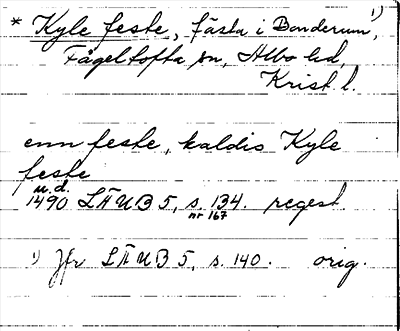 * Kyle feste, fästa i Bonderum, 1)
Fågeltofta sn, Albo hd,
Krist. l.
enn feste, kaldis Kyle
feste
u.d.
1490 LÄUB 5, s. 134. regest
nr 167
1) Jfr LÄUB 5, s. 140. orig.